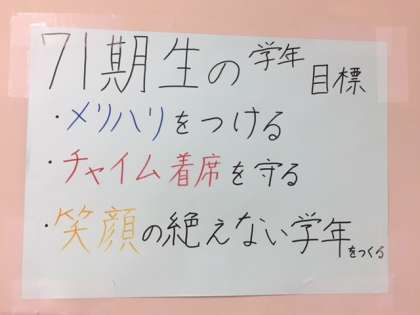 71期生の学年目標
・メリハリをつける
・チャイム着席を守る
・笑顔の絶えない学年をつくる